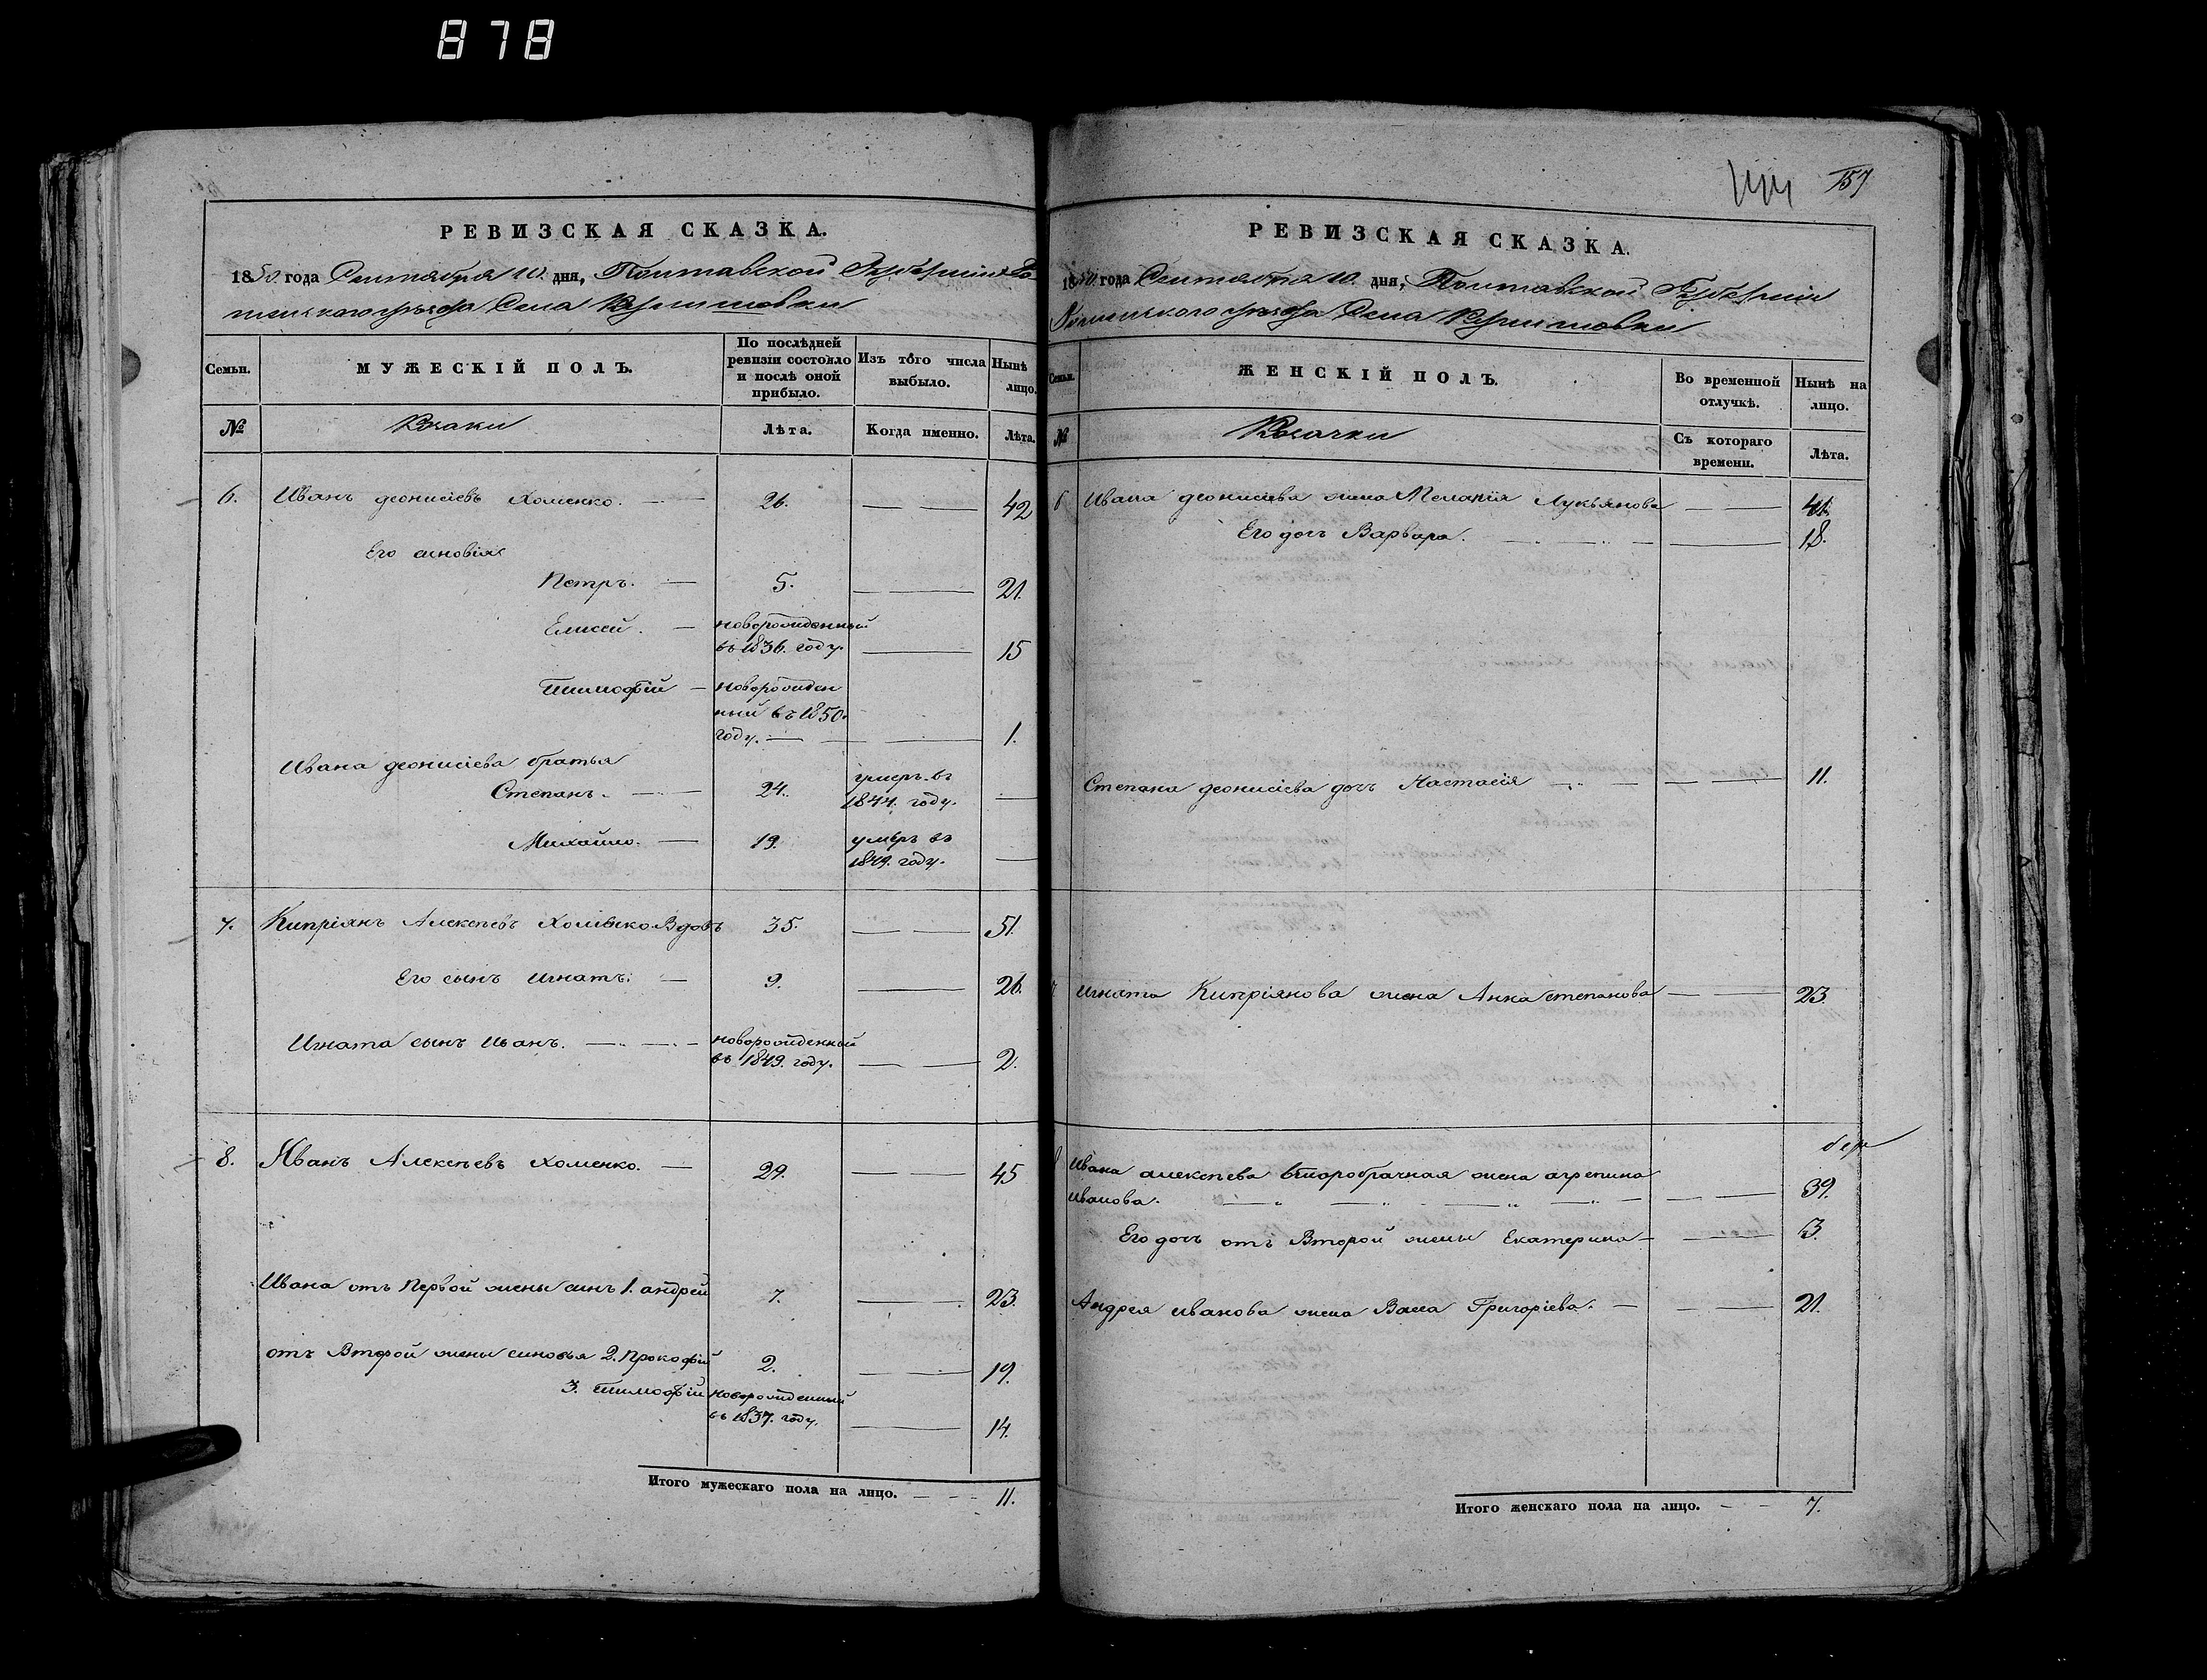 878
157
РЕВИЗСКАЯ СКАЗКА.
1850. года Сентября 10. дня, Полтавской Губерніи
уезда Села
Семьи.
МУЖЕСКІЙ ПОЛЪ.
По послѣдней ревизіи состояло и послѣ оной прибыло.
Изъ того числа выбыло.
Нынѣ лицо.
№
Казаки
Лѣта.
Когда именно.
Лѣта.
6. Иванъ деонисіевъ Хоменко. 26. 42
Его синовія
Петръ. 5. 21.
Елисей. новорожденный
въ 1836. году. 15
Тимофій новорожден
ный въ 1850.
году. 1.
Ивана деонисіева братья
Степанъ. 24. умеръ въ
1844. году.
Михайло. 19. умеръ въ
1849. году.
7. Кипріянъ Алексеевъ Хоменко Вдовъ 35. 51.
Его сынъ Игнатъ. 9. 26.
Игната сынъ Иванъ. новорожденный
въ 1849. году. 2.
8. Иванъ Алексеевъ Хоменко. 29. 45
Ивана отъ Первой жены синъ 1. андрей 7. 23.
отъ Второй жены синовья 2. Прокофій 2. 19.
3. Тимофій новорожденный
въ 1837. году. 14.
Итого мужескаго пола на лицо. 11.
РЕВИЗСКАЯ СКАЗКА.
1850. года Сентября 10. дня, Полтавской Губерніи
уезда Села
Семьи.
ЖЕНСКІЙ ПОЛЪ.
Во временной отлучкѣ.
Нынѣ на лицо.
№
Казачки
Съ котораго времени.
Лѣта.
6 Ивана деонисіева жена Меланія Лукьянова 41.
Его дочъ Варвара. 18.
Степана деонисіева дочъ Настасія 11.
7 Игната Кипріянова жена Анна степанова 23
8 Ивана алексеева второбрачная жена агрепина
иванова. 39.
Его дочъ отъ Второй жены Екатерина 3.
Андрея иванова жена Васса Григоріева. 21.
Итого женскаго пола на лицо. 7.